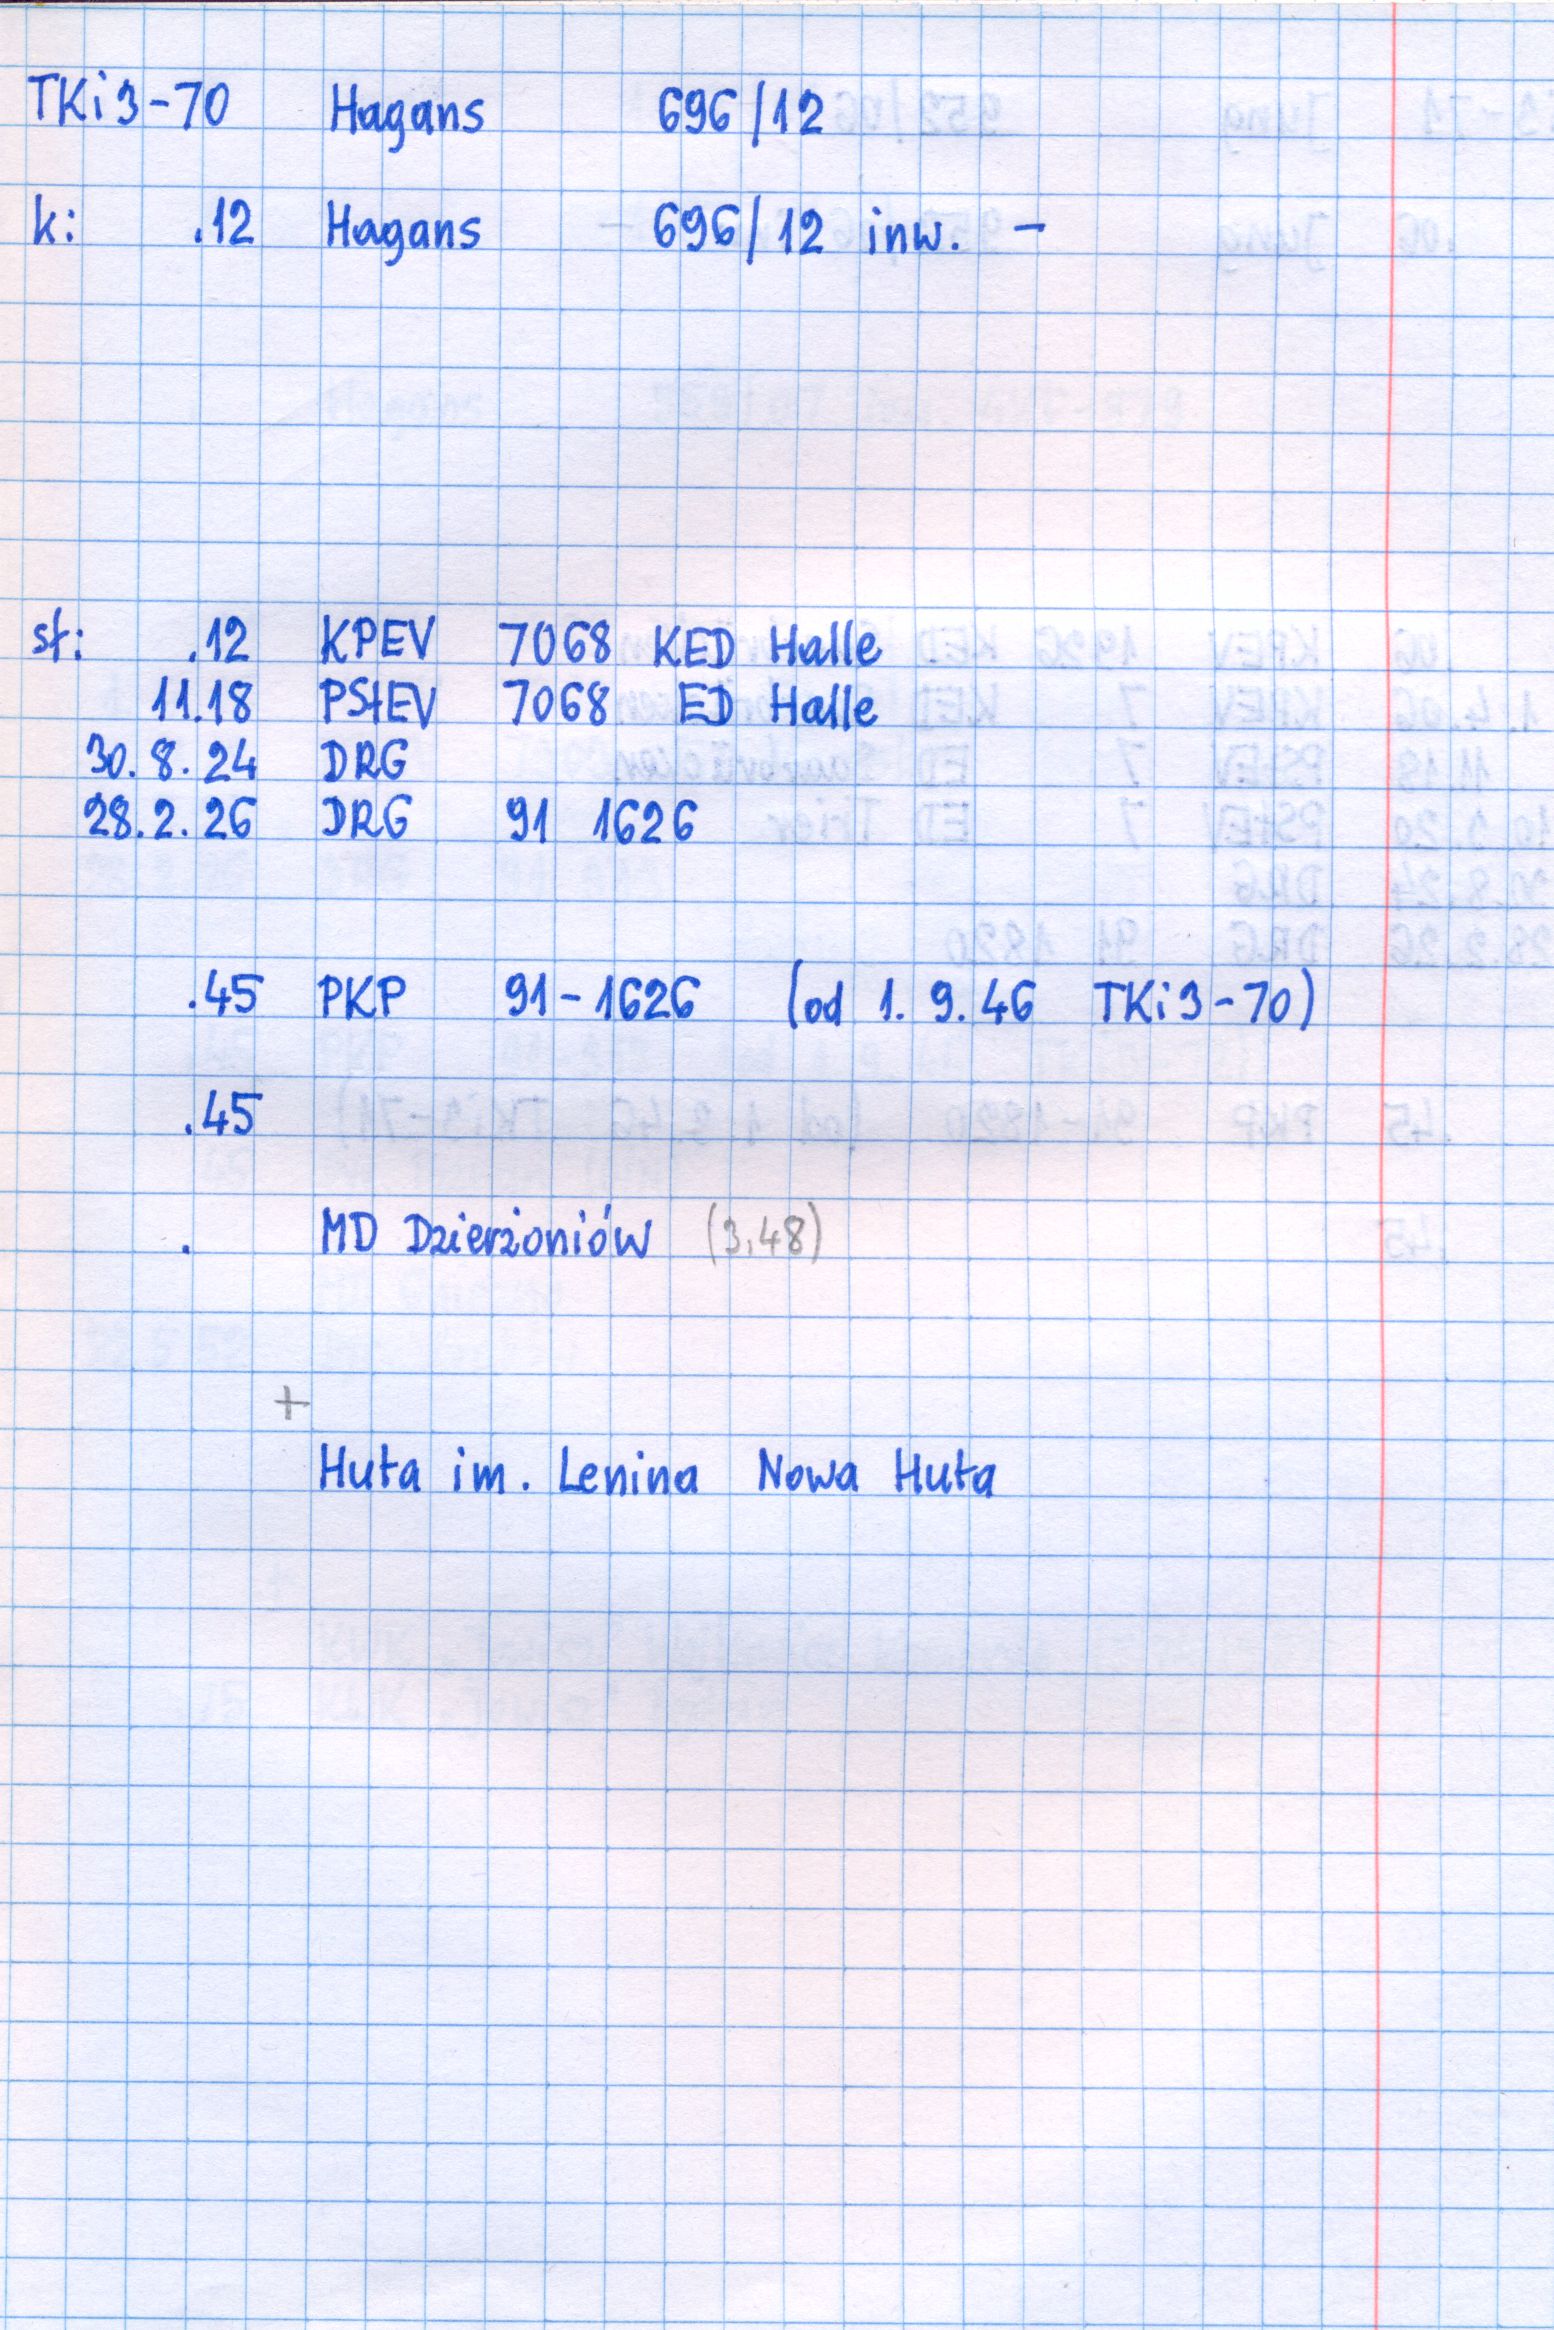 TKi3-70 Hagans 696/12
k: .12 Hagans 696/12 inw. -
st: .12 KPEV 7068 KED Halle
11.18 PStEV 7068 ED Halle
30.8.24 DRG
28.2.26 DRG 91 1626
.45 PKP 91-1626 (od 1.9.46 TKi3-70)
.45
. MD Dzierżoniów (3.48)
+
Huta im. Lenina Nowa Huta